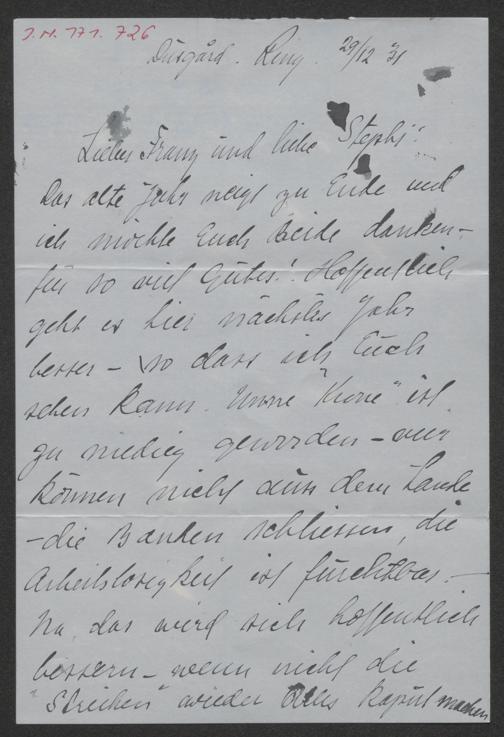 J.N. 171.726
Dusgård. Ring. 29/12 31
Lieber Franz und liebe Stephi!
Das alte Jahr neigt zu Ende und
ich möchte Euch Beide danken-
für so viel Gutes! Hoffentlich
geht es hier nächstes Jahr
besser - so dass ich Euch
sehen kann. Unsre "Krone" ist
zu niedrig geworden - wir
können nicht aus dem Lande
- die Banken schliessen, die
Arbeitslosigkeit ist furchtbar. -
Na, das wird sich hoffentlich
bessern - wenn nicht die
"Streiken" wieder Alles kaput machen